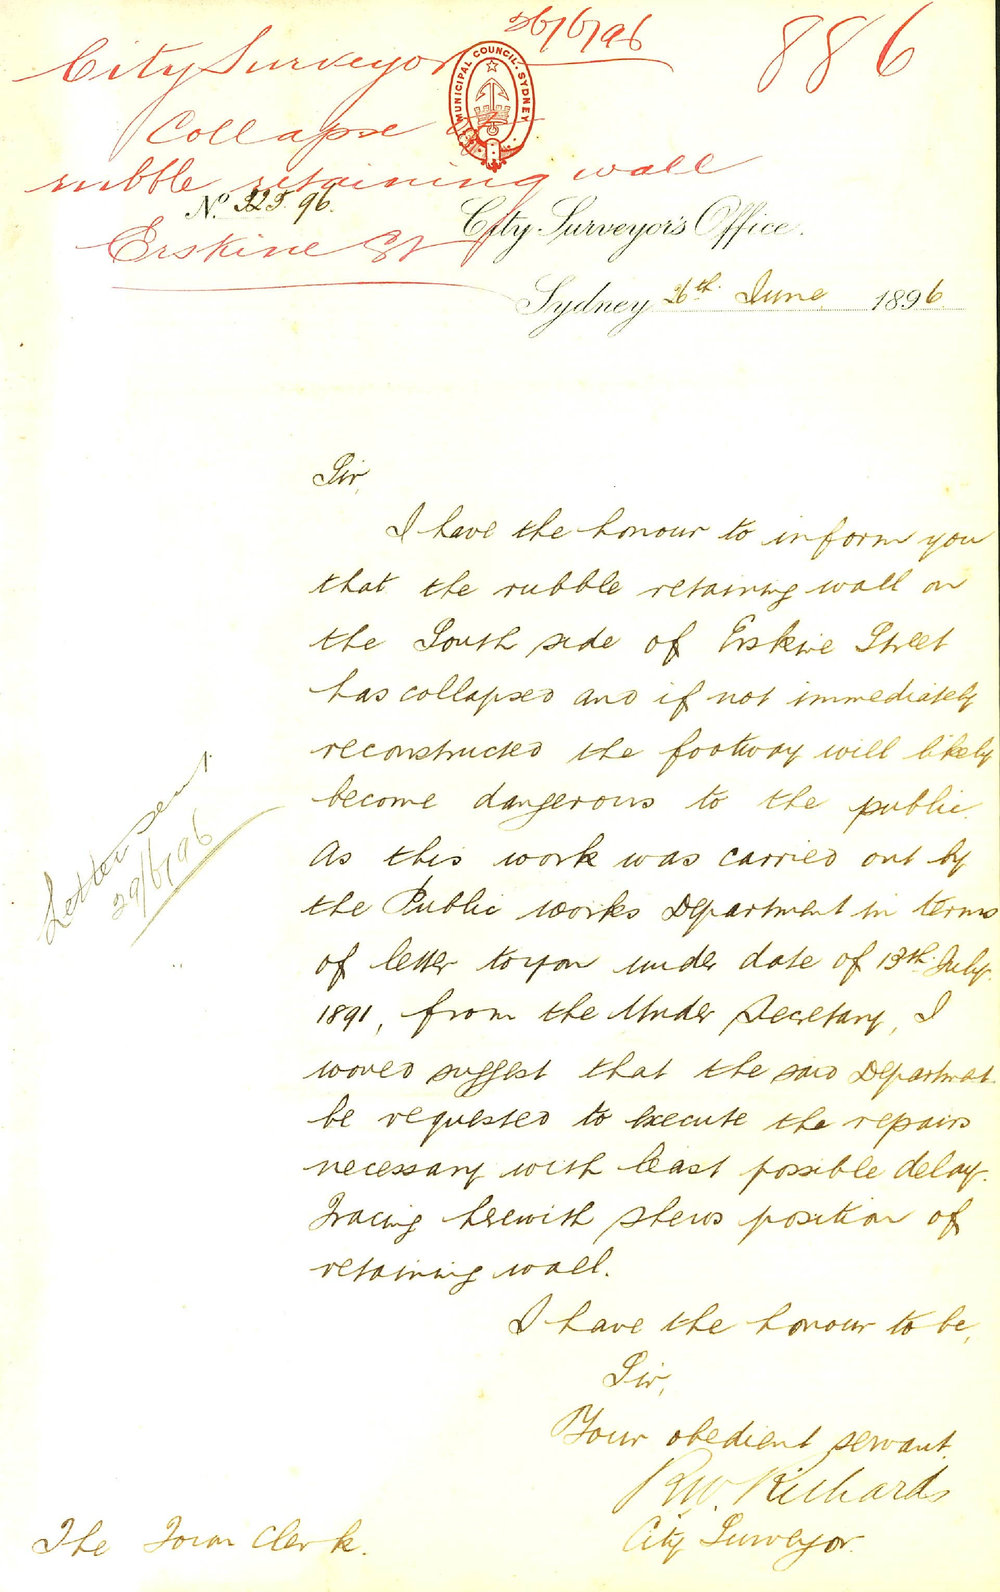 26/6/96
886
City Surveyor
MUNICIPAL COUNCIL. SYDNEY
Collapse of
rubble retaining wall
Erskine St
No. 325.96.
City Surveyor's Office.
Sydney 26th June 1896
Sir,
I have the honour to inform you
that the rubble retaining wall on
the South side of Erskine Street
has collapsed and if not immediately
reconstructed the footway will likely
become dangerous to the public.
As this work was carried out by
the Public Works Department in terms
of letter to you under date of 13th July
1891, from the Under Secretary, I
would suggest that the said Departmt.
be requested to execute the repairs
necessary with least possible delay.
Tracing herewith shews position of
retaining wall.
I have the honour to be,
Sir,
Your obedient servant.
R.W. Richards
City Surveyor.
The Town Clerk.
Letter sent
29/6/96